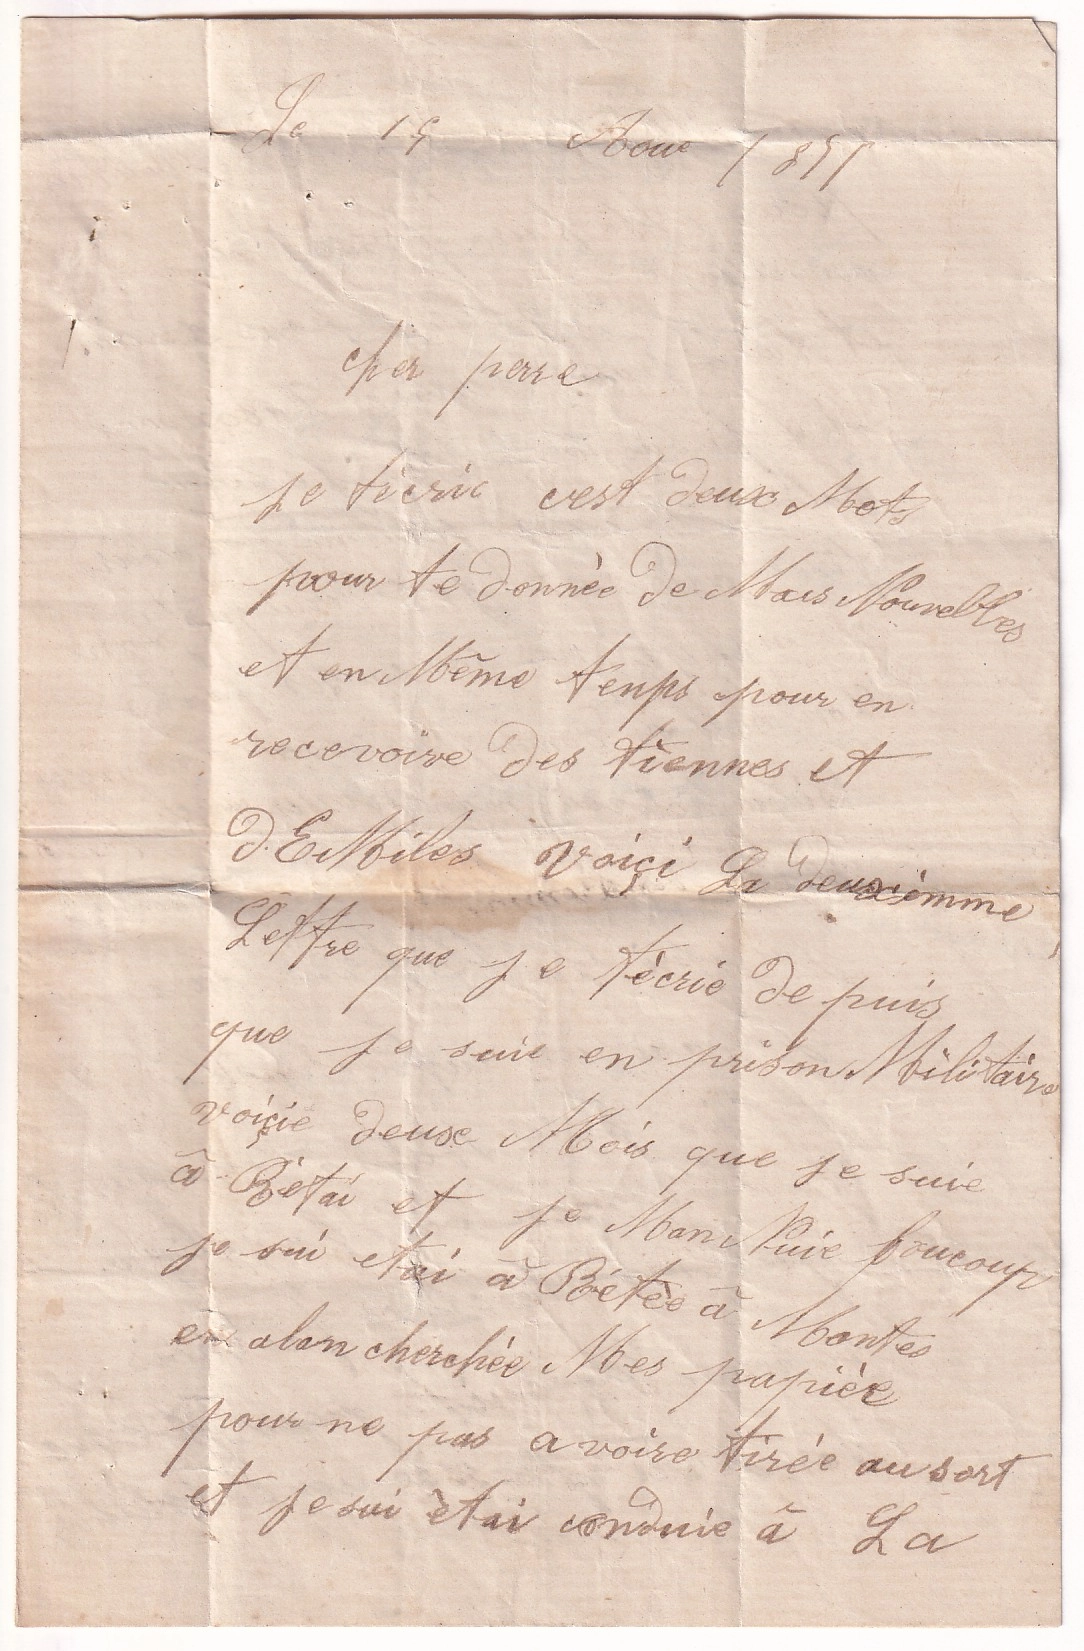 Le 15 Aoue 1855
cher perre
je tiecrie cest deux Mots
pour te donnèe de Mais Nouvelles
et en Mème temps pour en
recevoire des tiennes et
d.EMiles voiçi La deuxièmme
Lettre que je tècrie de puis
que je suie en prison Militaire
voiçie deuxe Mois que je suie
à et je Man Nuie boucoup
je sui etai à à Mantes
en alan cherchèe Mes papièe
pour ne pas avoire tirèe au sort
et je sui ètai conduie à La